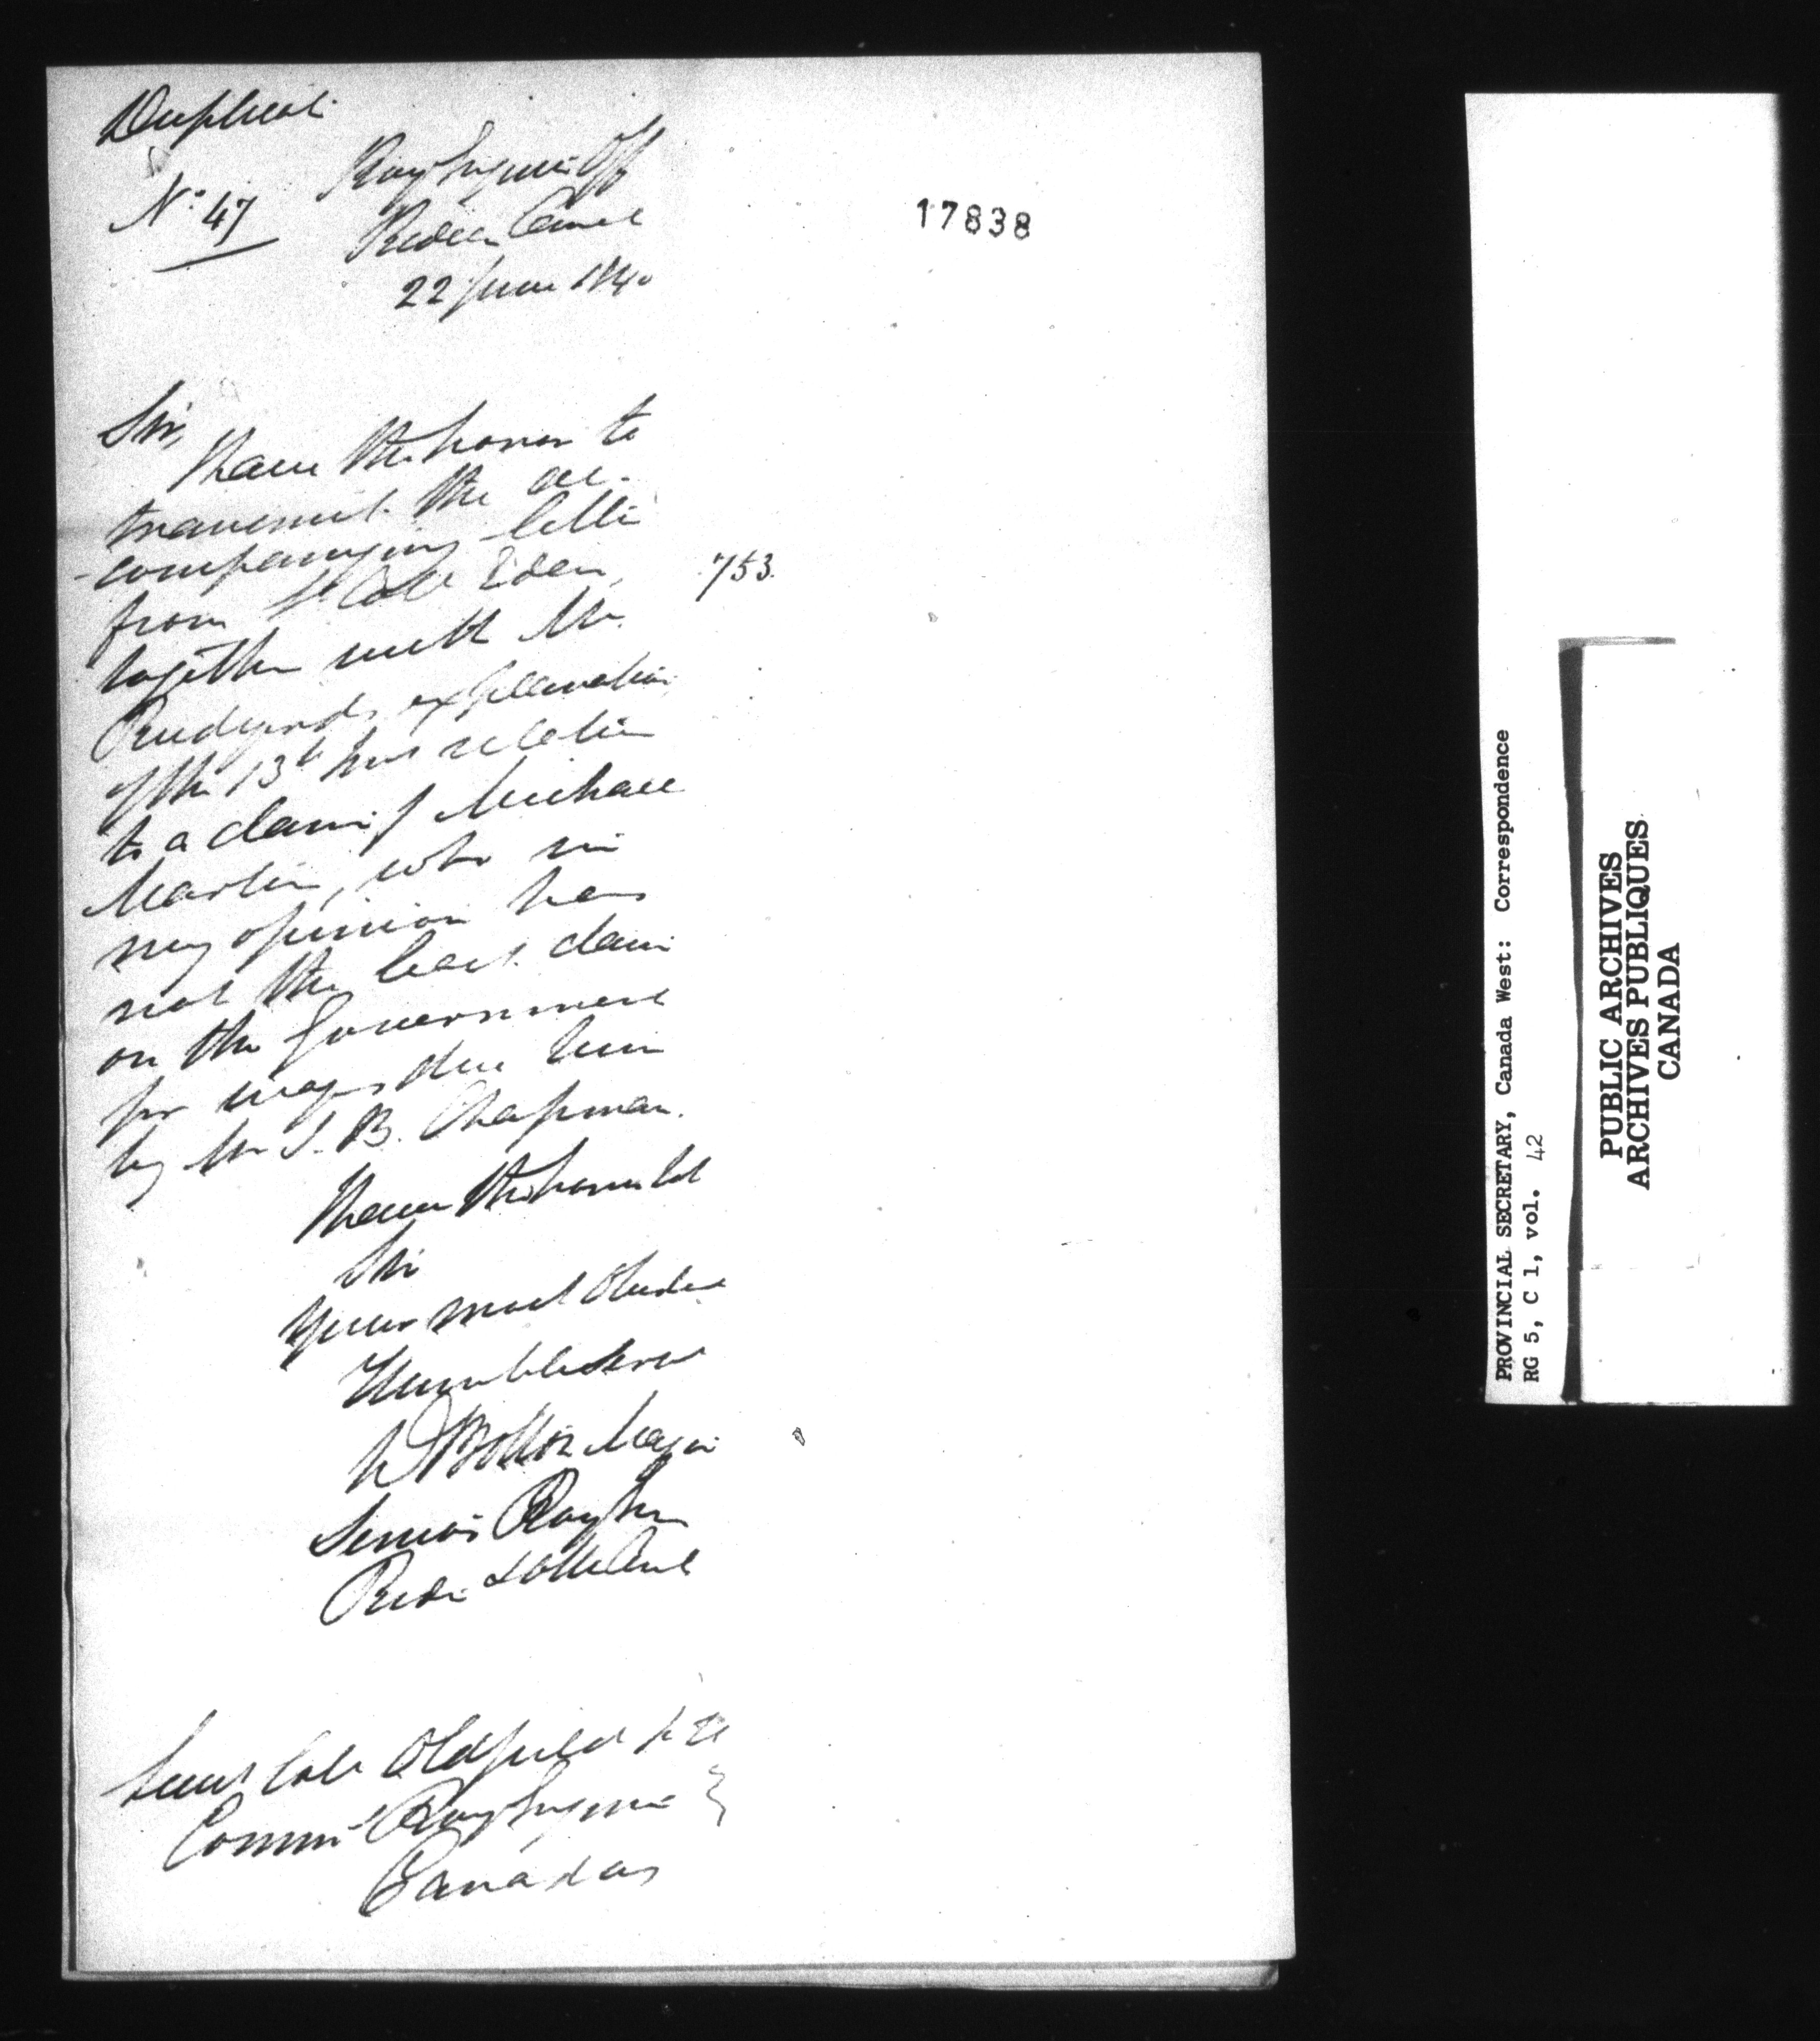 Duplicat
Roy Engineer Off
No. 47
Rideau Canal
22 June 1840
17838
Sir,
I have the honor to
transmit the ac-
-companying letter
from Lt Coll Eden,
753.
together with Mr.
Rudyerd's explanation
of the 13th Inst relative
to a claim of Michael
Martin, who in
my opinion has
not the least claim
on the Government
for wages due him
by Mr J. B. Chapman.
I have the honor to be
Sir
Your most Obedient
Humble Servt
D Bolton Major
Senior Roy Eng
Rideau & Otta Canal
Lieut Coll Oldfield K.H.
Comm'g Roy Engineer
Canadas
PROVINCIAL SECRETARY, Canada West: Correspondence
RG 5, C 1, vol. 42
PUBLIC ARCHIVES
ARCHIVES PUBLIQUES
CANADA